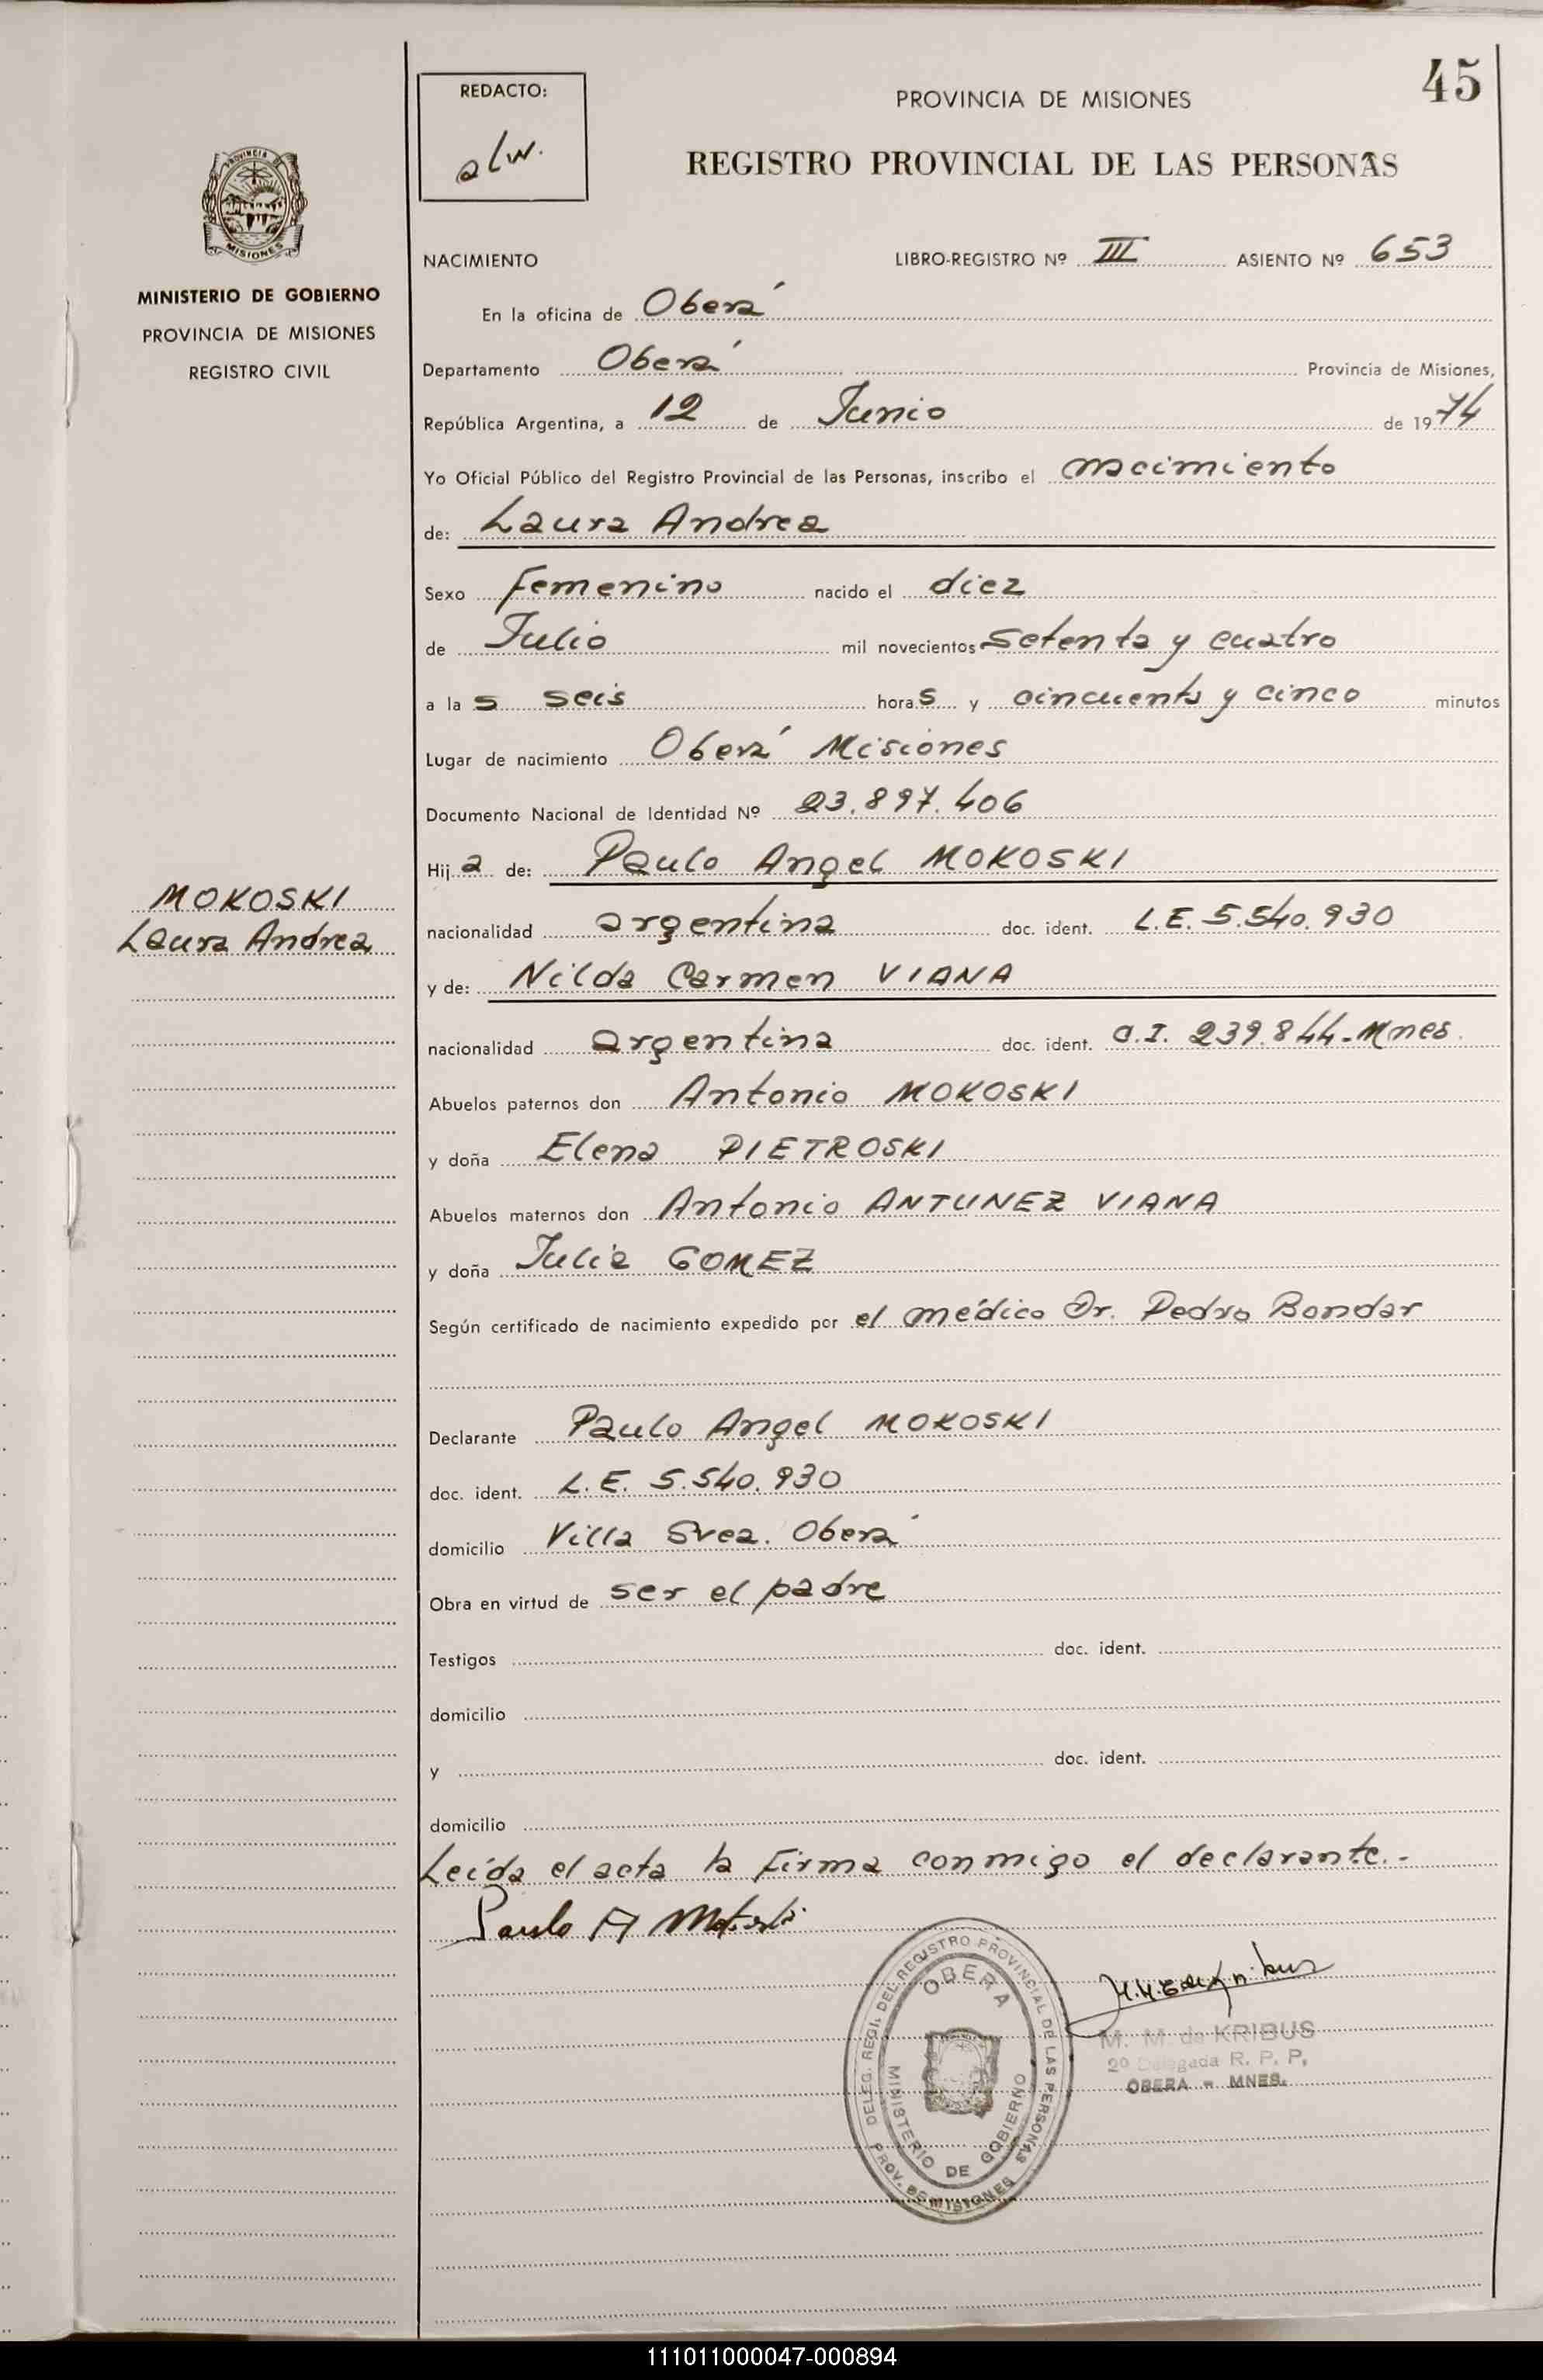 45
REDACTO:
alw.
PROVINCIA DE MISIONES
REGISTRO PROVINCIAL DE LAS PERSONAS
PROVINCIA DE
MISIONES
MINISTERIO DE GOBIERNO
PROVINCIA DE MISIONES
REGISTRO CIVIL
NACIMIENTO LIBRO-REGISTRO Nº III ASIENTO Nº 653
En la oficina de Oberá
Departamento Oberá Provincia de Misiones,
República Argentina, a 12 de Junio de 1974
Yo Oficial Público del Registro Provincial de las Personas, inscribo el nacimiento
de: Laura Andrea
Sexo Femenino nacido el diez
de Julio mil novecientos setenta y cuatro
a las seis horas y cincuenta y cinco minutos
Lugar de nacimiento Oberá Misiones
Documento Nacional de Identidad Nº 23.897.406
Hija de: Paulo Angel MOKOSKI
MOKOSKI
Laura Andrea
nacionalidad argentina doc. ident. L.E. 5.540.930
y de: Nilda Carmen VIANA
nacionalidad argentina doc. ident. C.I. 239.844-Mnes.
Abuelos paternos don Antonio MOKOSKI
y doña Elena PIETROSKI
Abuelos maternos don Antonio ANTUNEZ VIANA
y doña Julia GOMEZ
Según certificado de nacimiento expedido por el médico Dr. Pedro Bondar
Declarante Paulo Angel MOKOSKI
doc. ident. L.E. 5.540.930
domicilio Villa Svea. Oberá
Obra en virtud de ser el padre
Testigos doc. ident.
domicilio
y doc. ident.
domicilio
Leída el acta la firma conmigo el declarante.-
Paulo A
DELEG. REGI. DEL REGISTRO PROVINCIAL DE LAS PERSONAS
PROV. DE MISIONES
OBERA
MINISTERIO DE GOBIERNO
M. M. de KRIBUS
2º Delegada R. P. P.
OBERA - MNES.
111011000047-000894